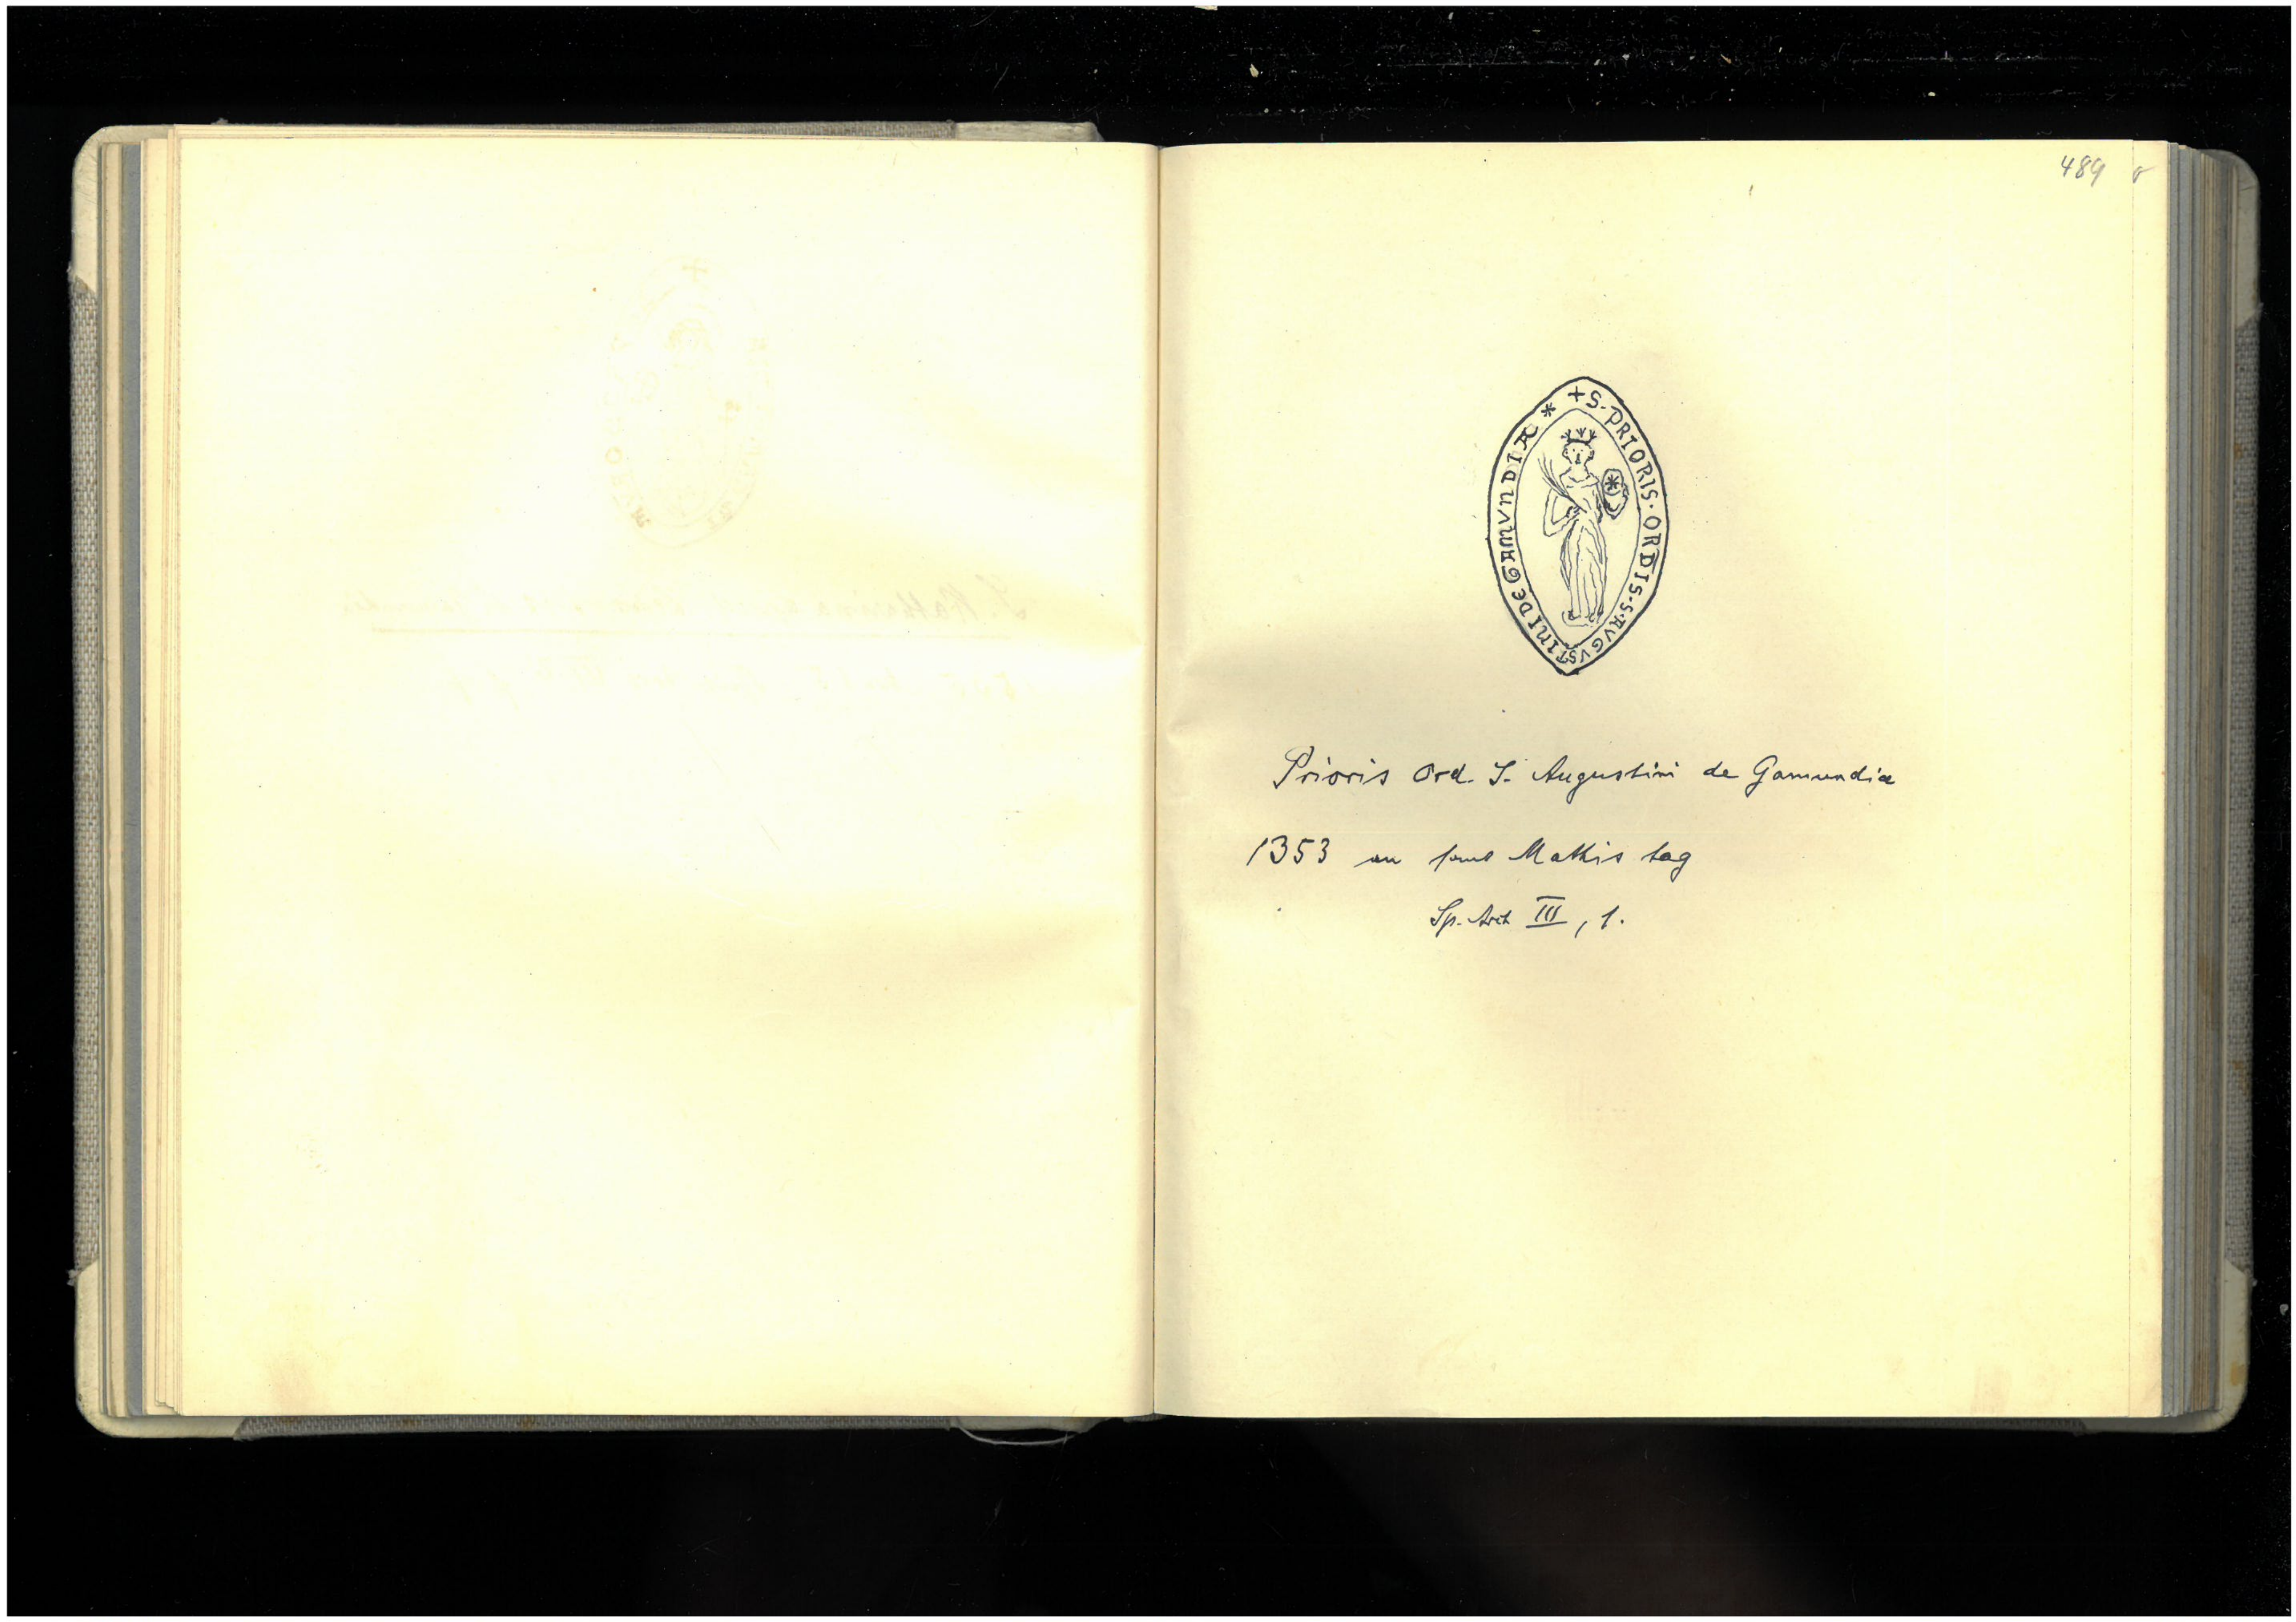 489
+ S. PRIORIS. ORDIS. S. AVGVSTINI DE GAMVNDIA *
Prioris Ord. S. Augustini de Gamundia
1353 an sant Mathis tag
Sp. Arch III, 1.